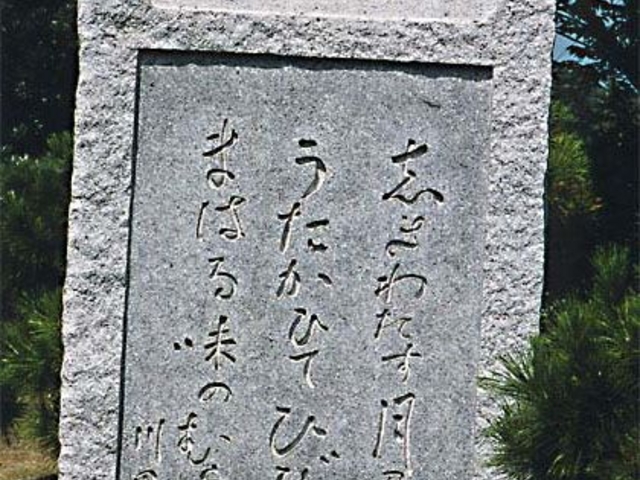 志きわたす月
うたかひてひび
まはる味のむ
川